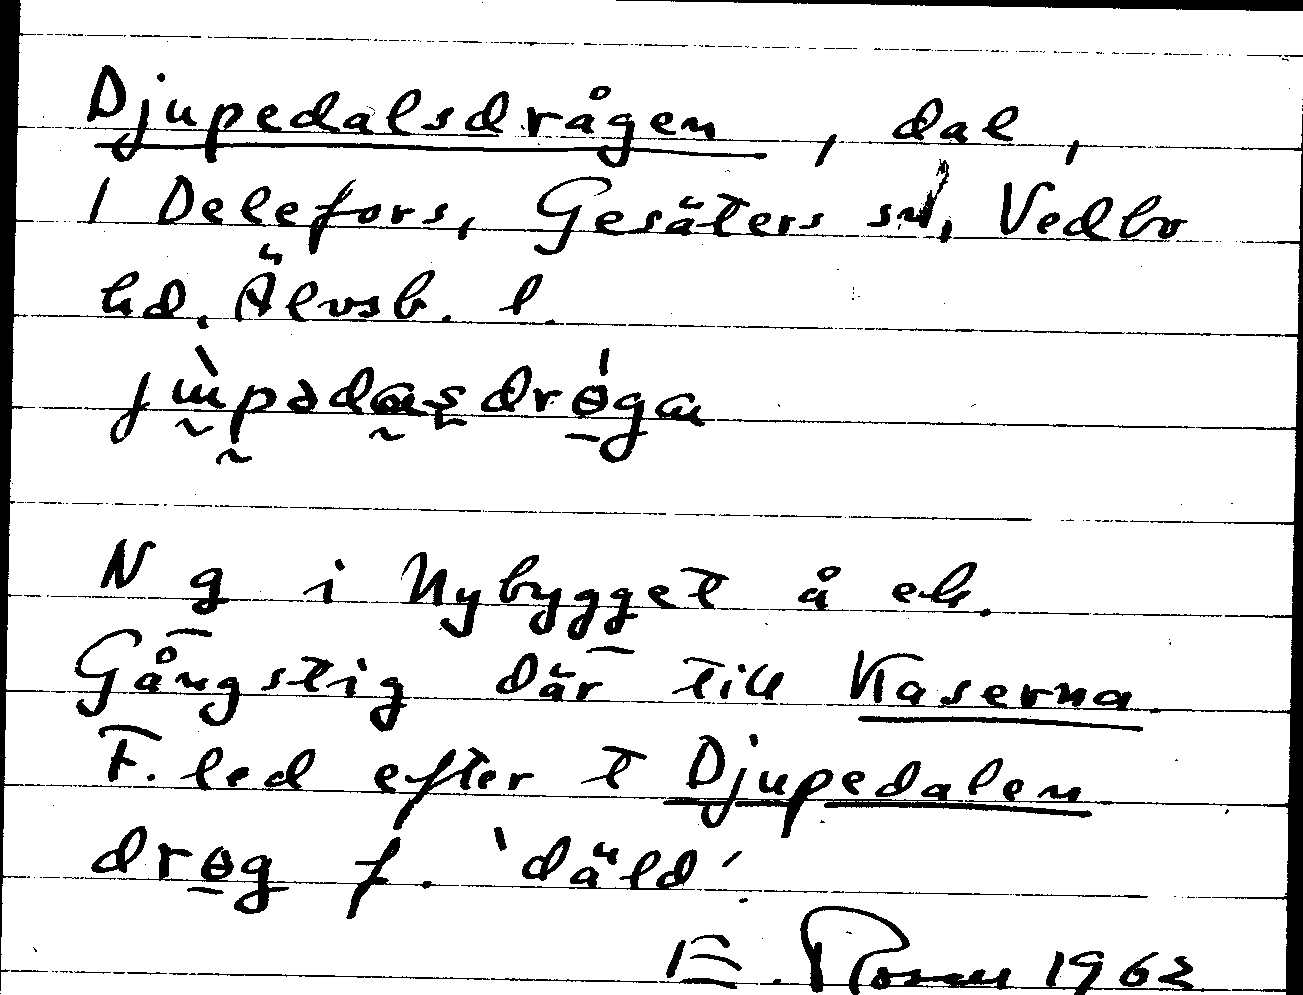 Djupedalsdrågen, dal,
i Delefors, Gesäters sn, Vedbo
hd. Älvsb. l.
N g i Nybygget å ek.
Gångstig där till Kaserna.
F. led efter t Djupedalen
drɵg f. 'däld'.
E. Rosell 1962